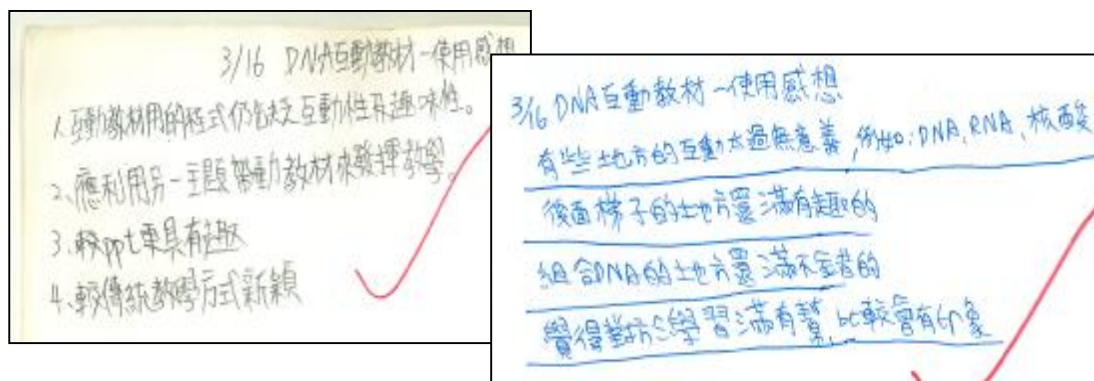 3/16 DNA互動教材-使用感想
1.互動教材用的程式仍然缺乏互動性及趣味性。
2、應利用另一主題帶動教材來發揮教學。
3.較ppt來具有趣
4、較傳統教學方式新穎
3/16 DNA互動教材~使用感想
有些地方的互動太過無意義,例如:DNA、RNA、核酸
後面梯子的地方還滿有趣的
組合DNA的地方還滿不錯的
覺得對於學習滿有幫,比較會有印象